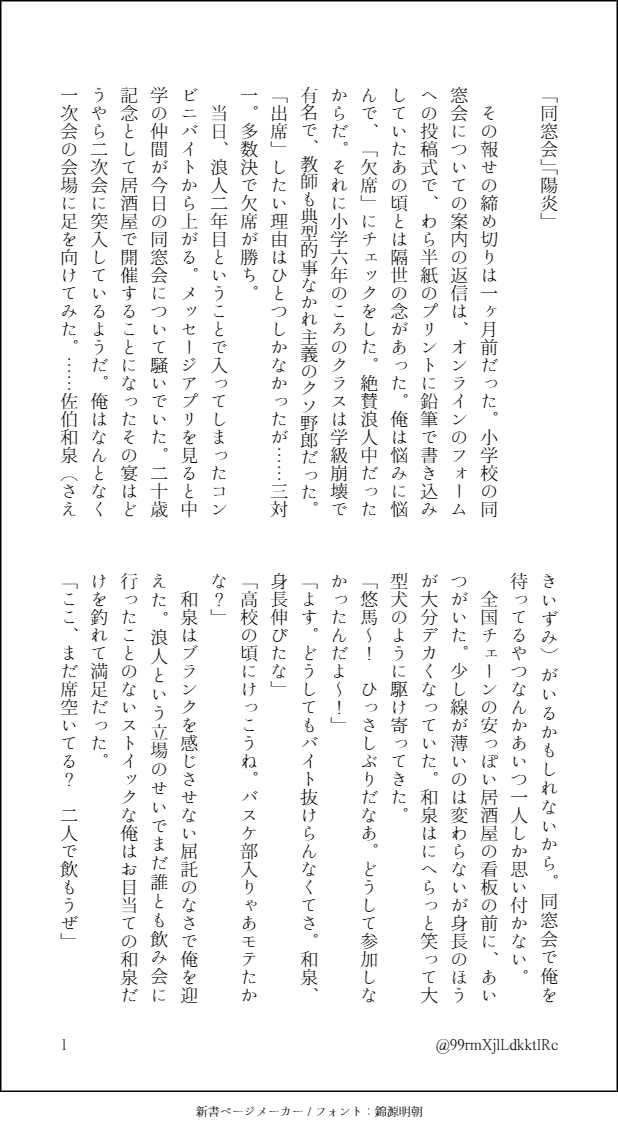 「同窓会」「陽炎」
　その報せの締め切りは一ヶ月前だった。小学校の同
窓会についての案内の返信は、オンラインのフォーム
への投稿式で、わら半紙のプリントに鉛筆で書き込み
していたあの頃とは隔世の念があった。俺は悩みに悩
んで、「欠席」にチェックをした。絶賛浪人中だった
からだ。それに小学六年のころのクラスは学級崩壊で
有名で、教師も典型的事なかれ主義のクソ野郎だった。
「出席」したい理由はひとつしかなかったが……三対
一。多数決で欠席が勝ち。
　当日、浪人二年目ということで入ってしまったコン
ビニバイトから上がる。メッセージアプリを見ると中
学の仲間が今日の同窓会について騒いでいた。二十歳
記念として居酒屋で開催することになったその宴はど
うやら二次会に突入しているようだ。俺はなんとなく
一次会の会場に足を向けてみた。……佐伯和泉（さえ
きいずみ）がいるかもしれないから。同窓会で俺を
待ってるやつなんかあいつ一人しか思い付かない。
　全国チェーンの安っぽい居酒屋の看板の前に、あい
つがいた。少し線が薄いのは変わらないが身長のほう
が大分デカくなっていた。和泉はにへらっと笑って大
型犬のように駆け寄ってきた。
「悠馬〜！　ひっさしぶりだなあ。どうして参加しな
かったんだよ〜！」
「よす。どうしてもバイト抜けらんなくてさ。和泉、
身長伸びたな」
「高校の頃にけっこうね。バスケ部入りゃあモテたか
な？」
　和泉はブランクを感じさせない屈託のなさで俺を迎
えた。浪人という立場のせいでまだ誰とも飲み会に
行ったことのないストイックな俺はお目当ての和泉だ
けを釣れて満足だった。
「ここ、まだ席空いてる？　二人で飲もうぜ」
1
@99rmXjlLdkktlRc
新書ページメーカー / フォント：錦源明朝